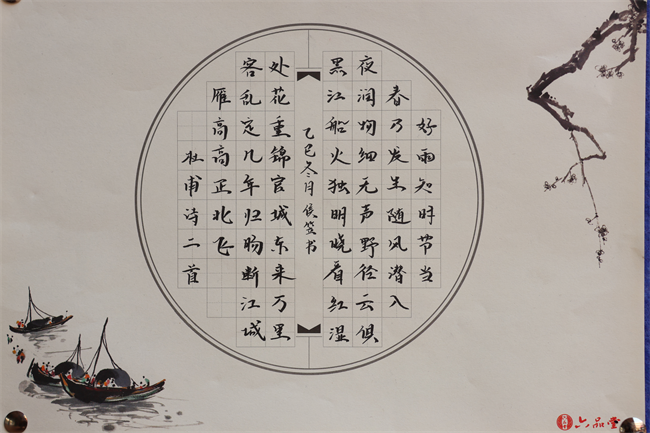 好雨知时节当
春乃发生随风潜入
夜润物细无声野径云俱
黑江船火独明晓看红湿
乙巳冬月侯书
处花重锦官城东来万里
客乱定几年归肠断江城
雁高高正北飞
杜甫诗二首
六品堂